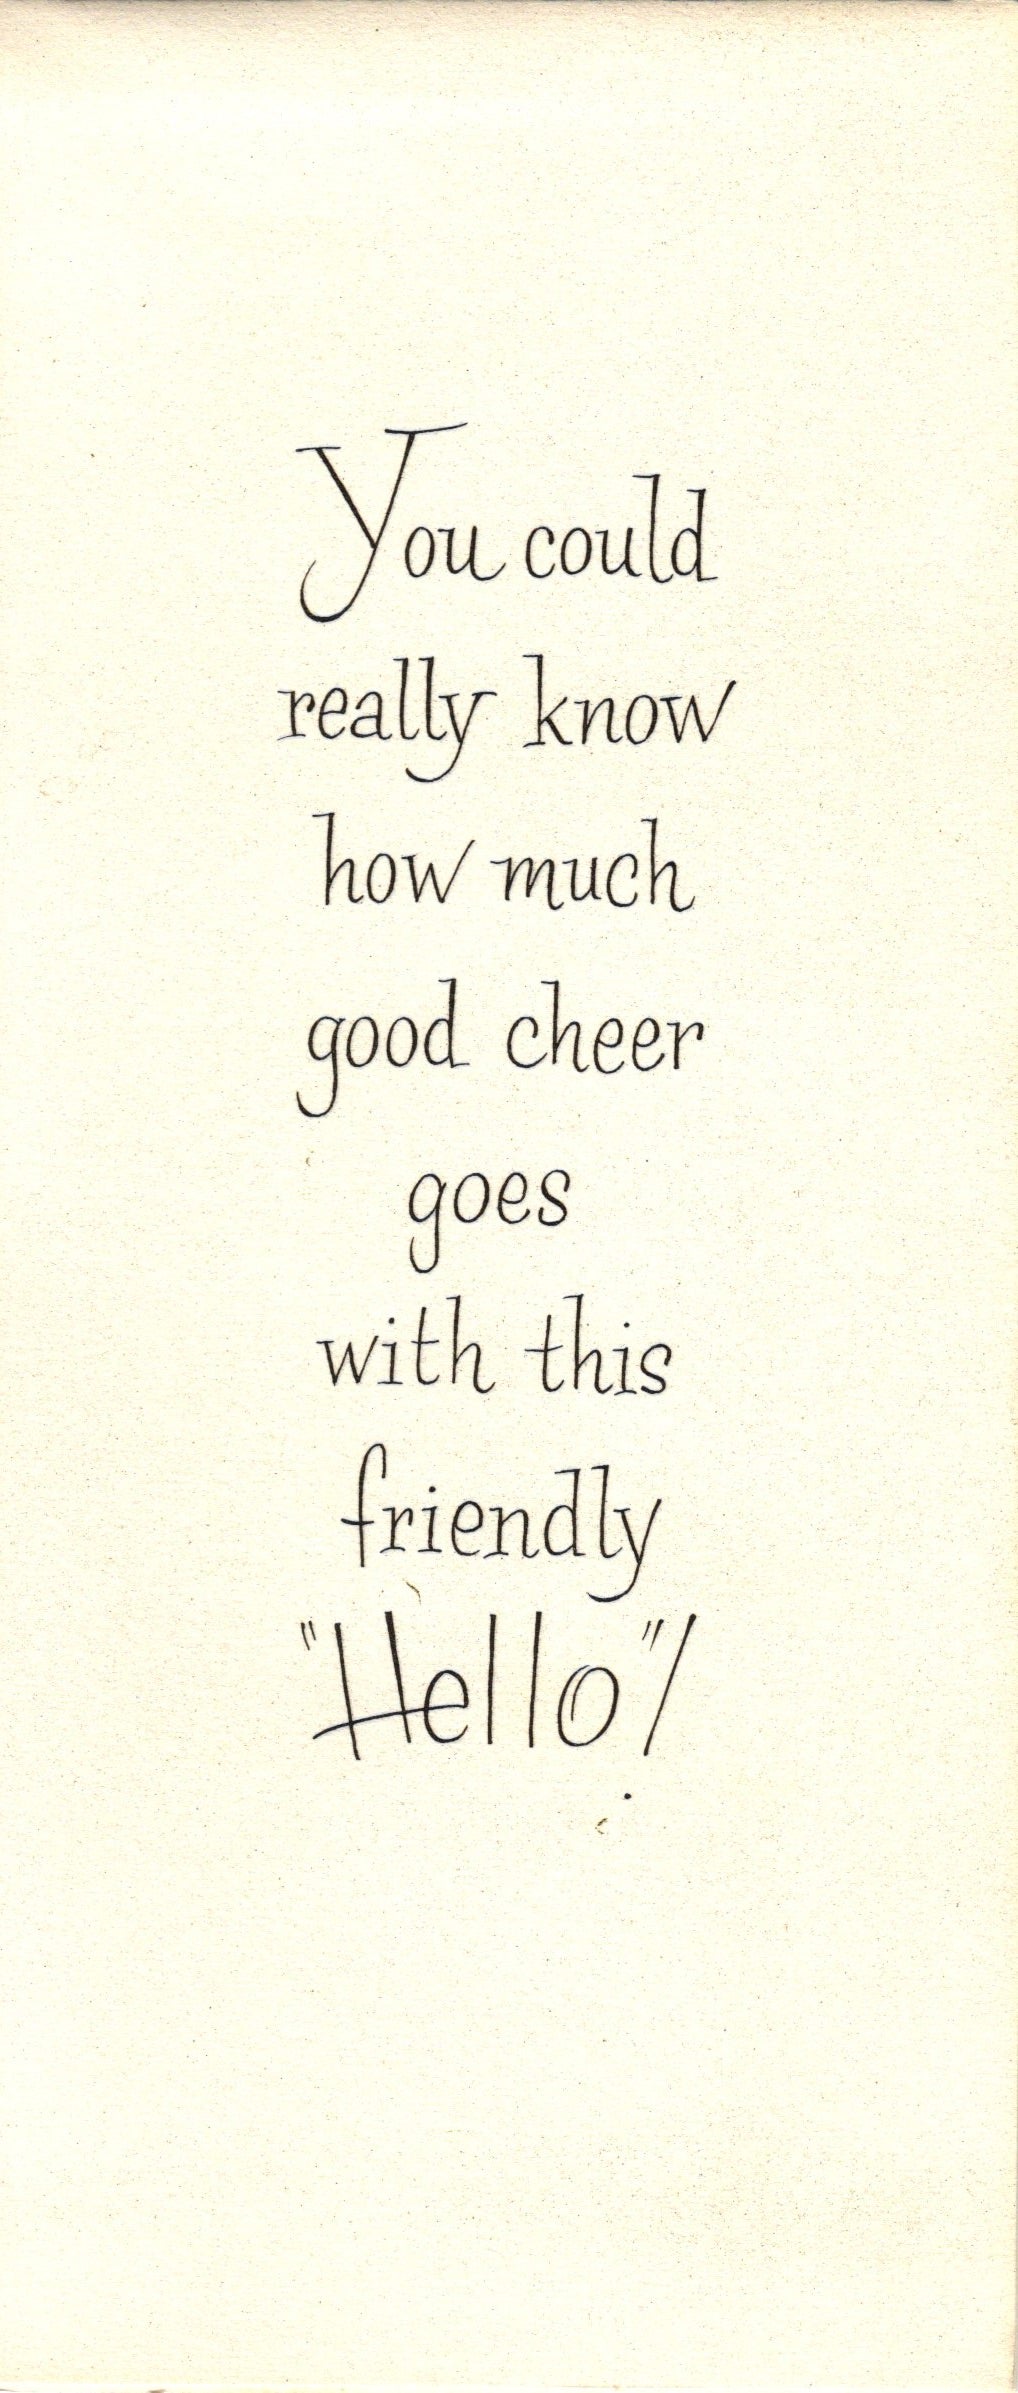 You could
really know
how much
good cheer
goes
with this
friendly
"Hello"!